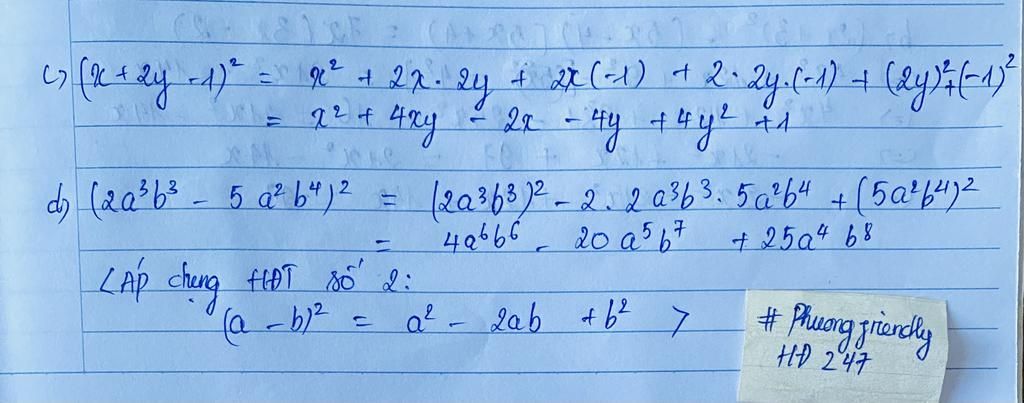 c) (x + 2y - 1)² = x² + 2x . 2y + 2x(-1) + 2 . 2y . (-1) + (2y)² + (-1)²
= x² + 4xy - 2x - 4y + 4y² + 1
d) (2a³b³ - 5a²b⁴)² = (2a³b³)² - 2 . 2a³b³ . 5a²b⁴ + (5a²b⁴)²
= 4a⁶b⁶ - 20a⁵b⁷ + 25a⁴b⁸
<Áp dụng HĐT số 2:
(a - b)² = a² - 2ab + b² >
# Phuongfriendly
HĐ 247